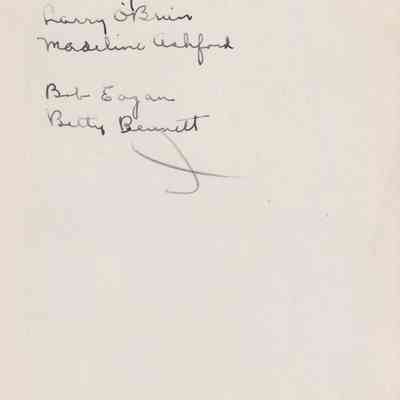 Larry O'Brien
Madeline Ashford
Bob Eagan
Betty Bennett